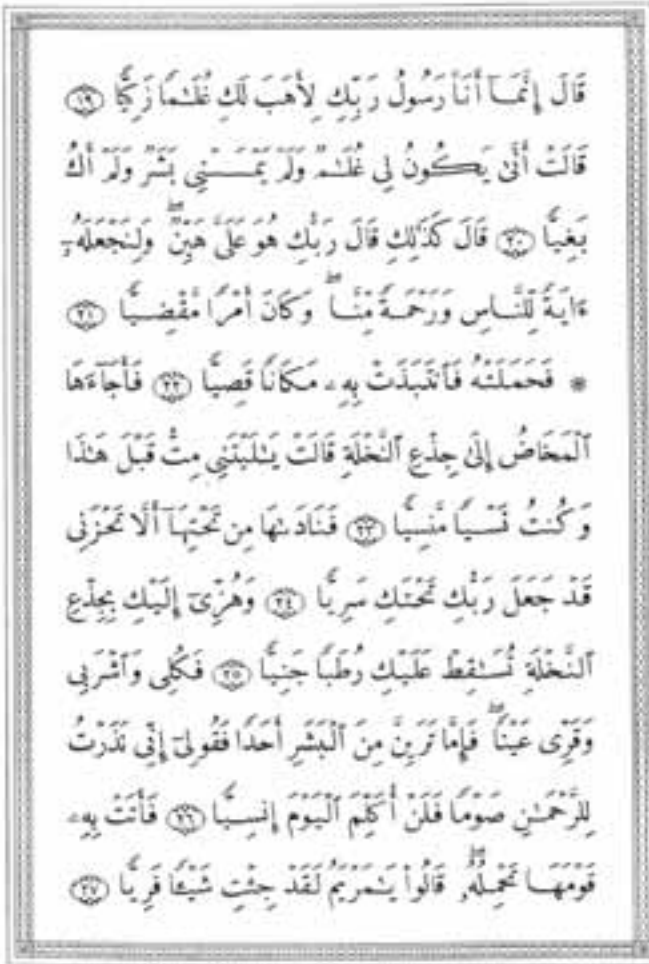 قَالَ إِنَّمَآ أَنَا۠ رَسُولُ رَبِّكِ لِأَهَبَ لَكِ غُلَـٰمًا زَكِيًّا ۝١٩
قَالَتْ أَنَّىٰ يَكُونُ لِى غُلَـٰمٌ وَلَمْ يَمْسَسْنِى بَشَرٌ وَلَمْ أَكُ
بَغِيًّا ۝٢٠ قَالَ كَذَٰلِكِ قَالَ رَبُّكِ هُوَ عَلَىَّ هَيِّنٌ ۖ وَلِنَجْعَلَهُۥٓ
ءَايَةً لِّلنَّاسِ وَرَحْمَةً مِّنَّا ۚ وَكَانَ أَمْرًا مَّقْضِيًّا ۝٢١
* فَحَمَلَتْهُ فَٱنتَبَذَتْ بِهِۦ مَكَانًا قَصِيًّا ۝٢٢ فَأَجَآءَهَا
ٱلْمَخَاضُ إِلَىٰ جِذْعِ ٱلنَّخْلَةِ قَالَتْ يَـٰلَيْتَنِى مِتُّ قَبْلَ هَـٰذَا
وَكُنتُ نَسْيًا مَّنسِيًّا ۝٢٣ فَنَادَىٰهَا مِن تَحْتِهَآ أَلَّا تَحْزَنِى
قَدْ جَعَلَ رَبُّكِ تَحْتَكِ سَرِيًّا ۝٢٤ وَهُزِّىٓ إِلَيْكِ بِجِذْعِ
ٱلنَّخْلَةِ تُسَـٰقِطْ عَلَيْكِ رُطَبًا جَنِيًّا ۝٢٥ فَكُلِى وَٱشْرَبِى
وَقَرِّى عَيْنًا ۖ فَإِمَّا تَرَيِنَّ مِنَ ٱلْبَشَرِ أَحَدًا فَقُولِىٓ إِنِّى نَذَرْتُ
لِلرَّحْمَـٰنِ صَوْمًا فَلَنْ أُكَلِّمَ ٱلْيَوْمَ إِنسِيًّا ۝٢٦ فَأَتَتْ بِهِۦ
قَوْمَهَا تَحْمِلُهُۥ ۖ قَالُوا۟ يَـٰمَرْيَمُ لَقَدْ جِئْتِ شَيْـًٔا فَرِيًّا ۝٢٧